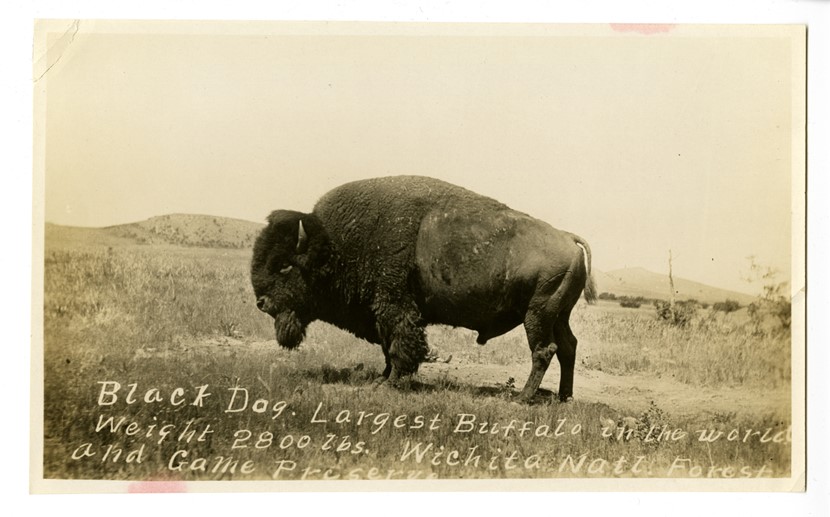 Black Dog. Largest Buffalo in the world
Weight 2800 lbs. Wichita Natl. Forest
and Game Preserve